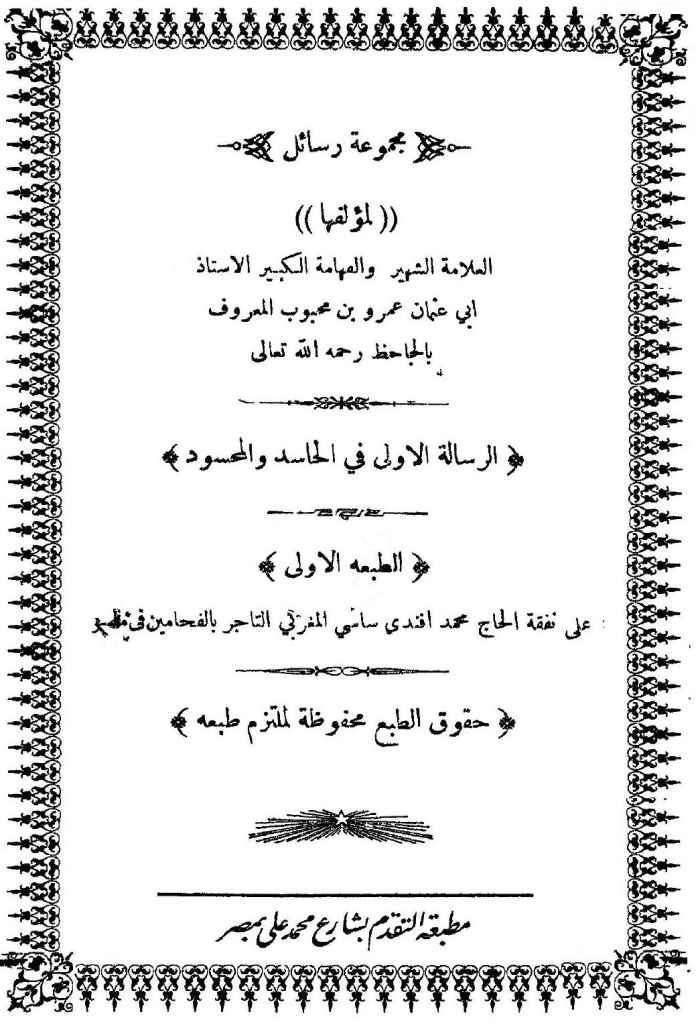 مجموعة رسائل
(( لمؤلفها ))
العلامة الشهير والفهامة الكبير الاستاذ
ابي عثمان عمرو بن محبوب المعروف
بالجاحظ رحمه الله تعالى
﴿ الرسالة الاولى في الحاسد والمحسود ﴾
﴿ الطبعه الاولى ﴾
على نفقة الحاج محمد افندى ساسي المغربي التاجر بالفحامين فى
﴿ حقوق الطبع محفوظة لملتزم طبعه ﴾
مطبعة التقدم بشارع محمد على بمصر